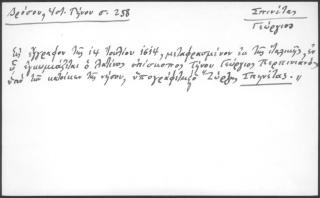 Δρόσου, Ἱστ. Τήνου σ. 258
Σπινέτας
Γεώργιος
Εἰς ἔγγραφον τῆς 14 Ἰουλίου 1614, μεταφρασμένον ἐκ τῆς Ἰταλικῆς, ἐν
ᾧ ἐγκωμιάζεται ὁ Λατῖνος ἐπίσκοπος Τήνου Γεώργιος Περπινιάνος
ὑπὸ τῶν κατοίκων τῆς νήσου, ὑπογράφεται "Σπινέτας."